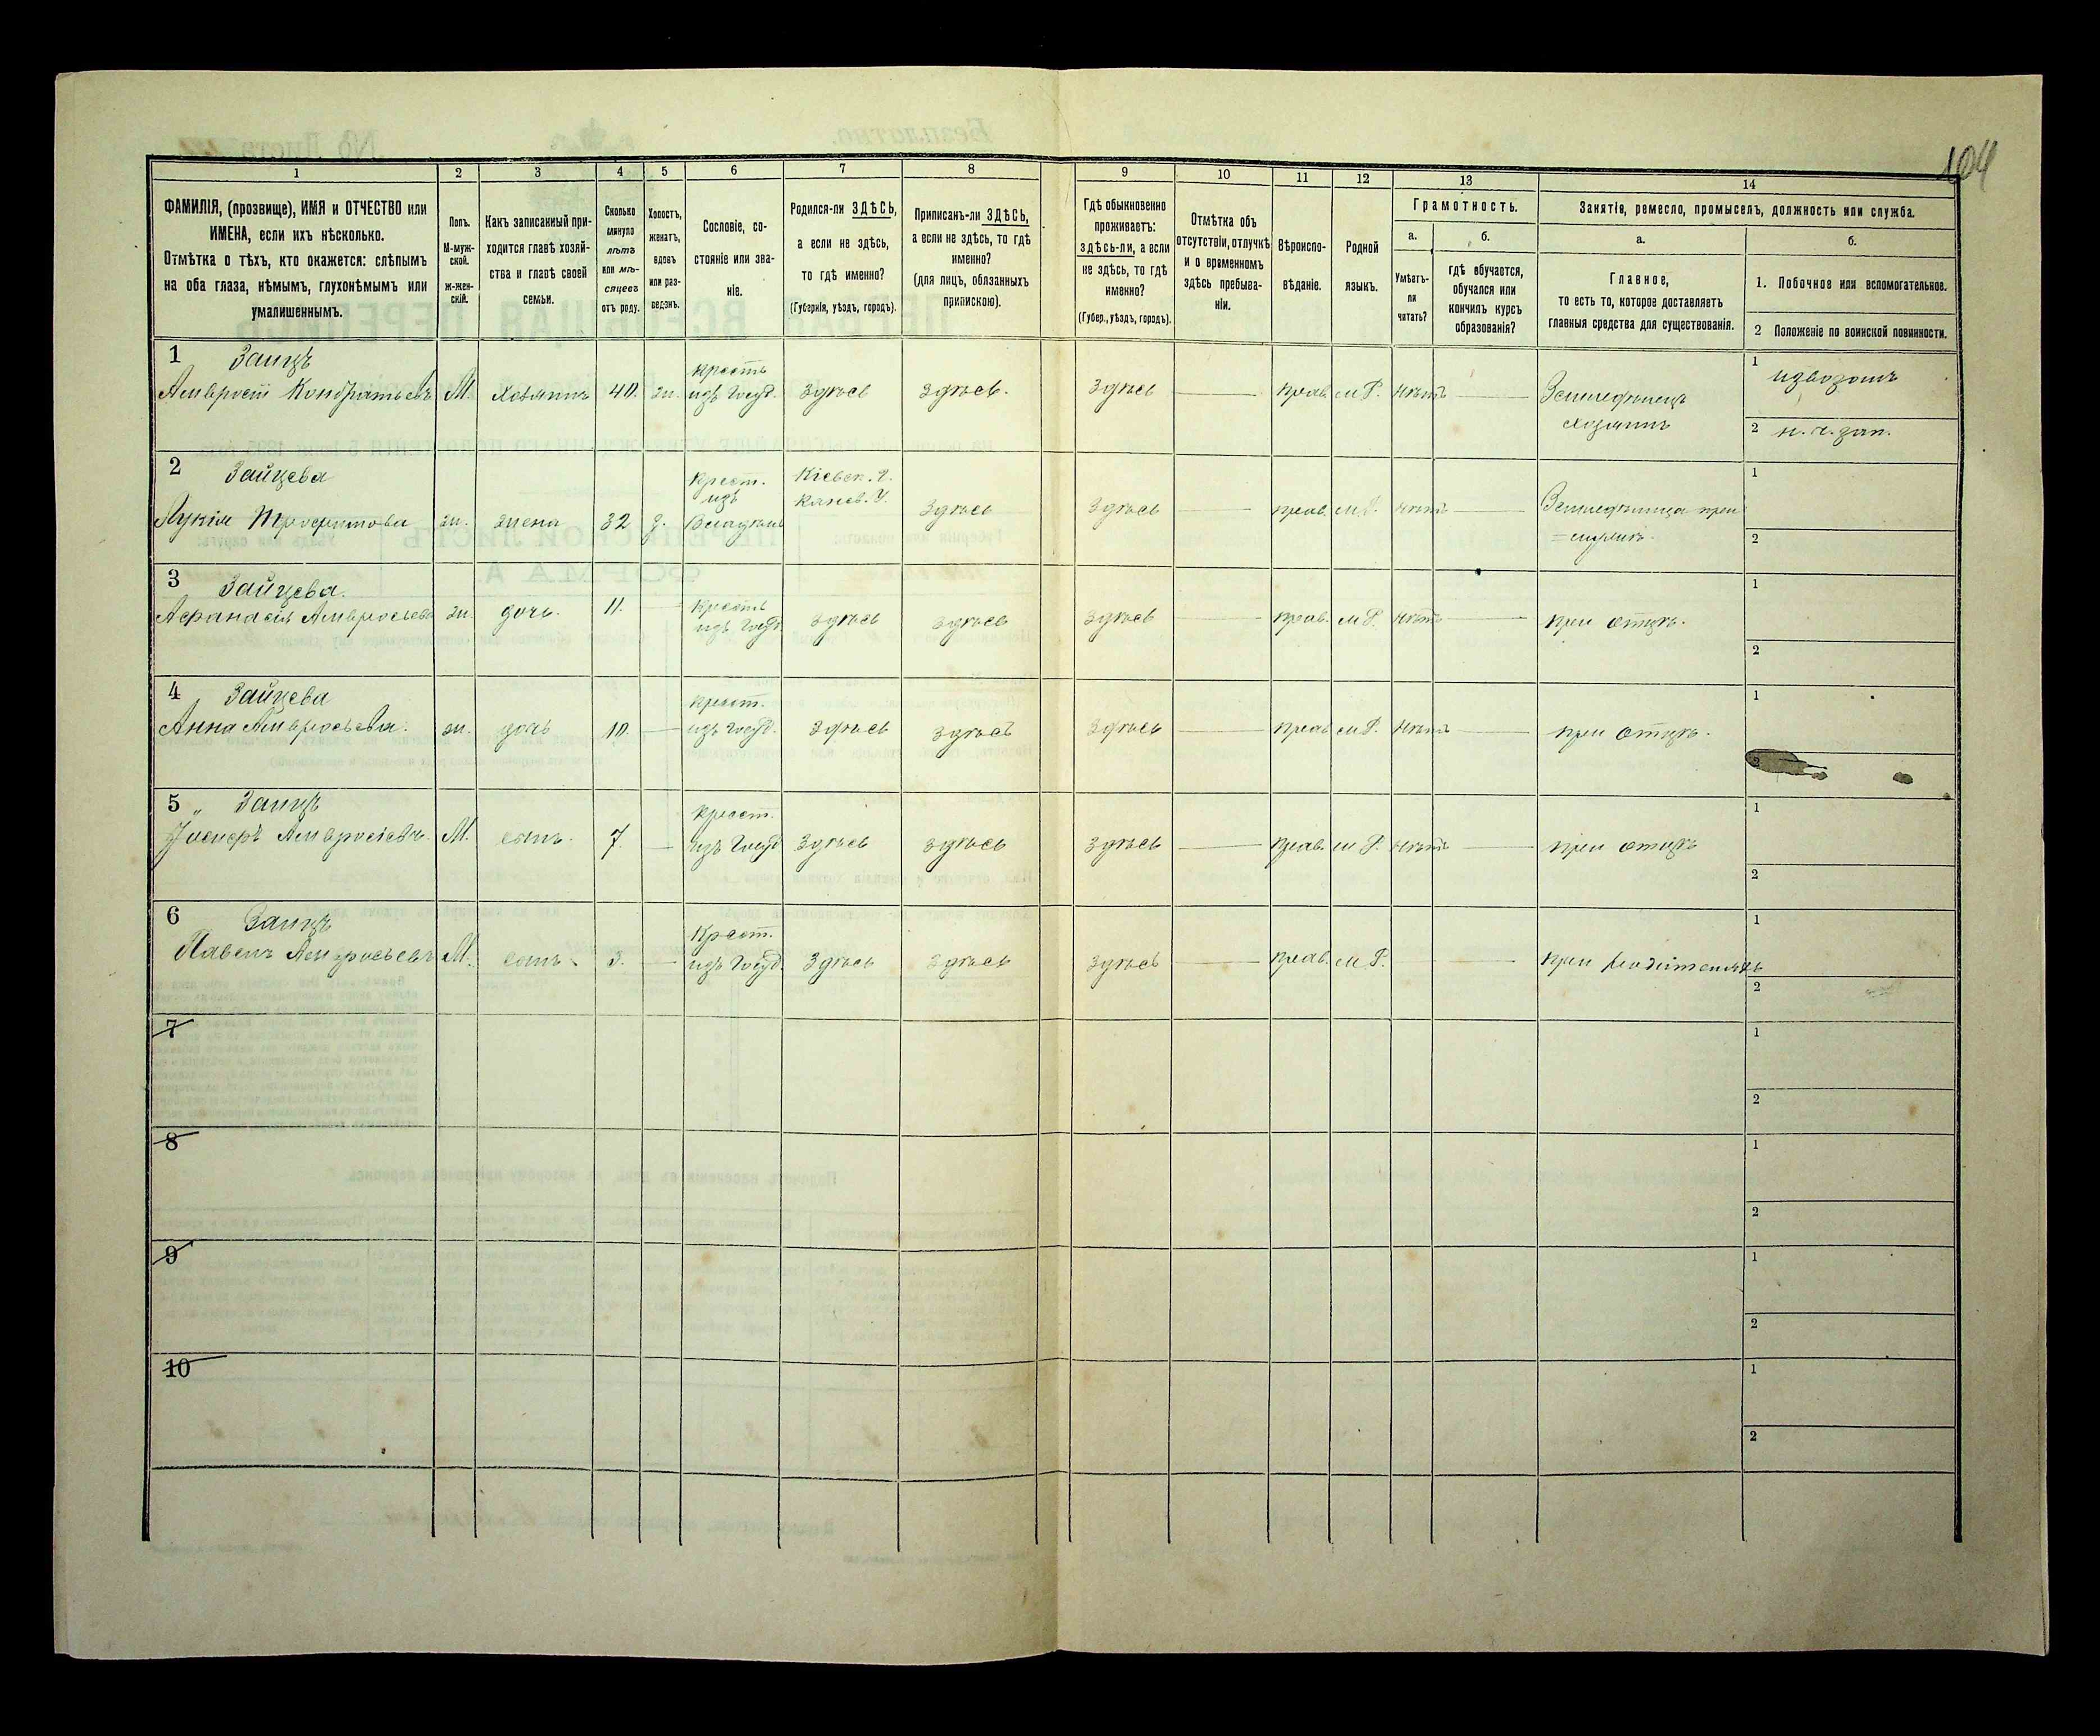 104
1
2
3
4
5
6
7
8
9
10
11
12
13
14
ФАМИЛІЯ, (прозвище), ИМЯ и ОТЧЕСТВО или
ИМЕНА, если ихъ нѣсколько.
Отмѣтка о тѣхъ, кто окажется: слѣпымъ
на оба глаза, нѣмымъ, глухонѣмымъ или
умалишеннымъ.
Полъ.
М-муж-
ской.
Ж-жен-
скій.
Какъ записанный при-
ходится главѣ хозяй-
ства и главѣ своей
семьи.
Сколько
минуло
лѣтъ
или мѣ-
сяцевъ
отъ роду.
Холостъ,
женатъ,
вдовъ
или раз-
веденъ.
Сословіе, со-
стояніе или зва-
ніе.
Родился-ли ЗДѢСЬ,
а если не здѣсь,
то гдѣ именно?
(Губернія, уѣздъ, городъ).
Приписанъ-ли ЗДѢСЬ,
а если не здѣсь, то гдѣ
именно?
(для лицъ, обязанныхъ
припискою).
Гдѣ обыкновенно
проживаетъ:
здѣсь-ли, а если
не здѣсь, то гдѣ
именно?
(Губер., уѣздъ, городъ).
Отмѣтка объ
отсутствіи, отлучкѣ
и о временномъ
здѣсь пребыва-
ніи.
Вѣроиспо-
вѣданіе.
Родной
языкъ.
Грамотность.
а.
Умѣетъ-
ли
читать?
б.
гдѣ обучается,
обучался или
кончилъ курсъ
образованія?
Занятіе, ремесло, промыселъ, должность или служба.
а.
Главное,
то есть то, которое доставляетъ
главныя средства для существованія.
б.
1. Побочное или вспомогательное.
2 Положеніе по воинской повинности.
1 Заицъ
Амвросій Кондратьевъ М. хозяинъ 40. ж. крестъ изъ Госуд. здѣсь здѣсь. здѣсь прав. м Р. нѣтъ Земледѣлецъ хозяинъ
1 извозомъ
2 н. ч. зап.
2 Зайцева
Лукія Трофимова ж. жена 32 з. крест. изъ Владѣльч Кіевск. г. Канев. у. здѣсь здѣсь прав. м Р. нѣтъ Земледѣлица при
1
2
3 Зайцева.
Афанасія Амвросьева ж. дочь. 11. крестъ изъ Госуд. здѣсь здѣсь здѣсь прав. м Р. нѣтъ при отцѣ.
1
2
4 Зайцева
Анна Амвросьева. ж. дочь 10. крест. изъ Госуд. здѣсь здѣсь здѣсь прав м Р. нѣтъ при отцѣ.
1
2
5 „ Заицъ
Іосифъ Амвросіевъ. М. сынъ. 7. крест. изъ Госуд здѣсь здѣсь здѣсь прав. м Р. нѣтъ при отцѣ
1
2
6 Заицъ
Павелъ Амвросьевъ М. сынъ 3. Крест. изъ Госуд. здѣсь здѣсь здѣсь прав. м Р. при родителяхъ
1
2
7
1
2
8
1
2
9
1
2
10
1
2